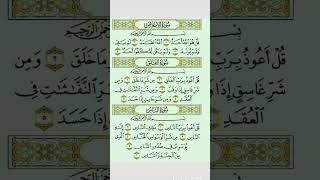 سُورَةُ الإِخْلَاصِ
بِسْمِ اللَّهِ الرَّحْمَٰنِ الرَّحِيمِ
قُلْ هُوَ اللَّهُ أَحَدٌ ١ اللَّهُ الصَّمَدُ ٢ لَمْ يَلِدْ
وَلَمْ يُولَدْ ٣ وَلَمْ يَكُن لَّهُ كُفُوًا أَحَدٌ ٤
سُورَةُ الفَلَقِ
بِسْمِ اللَّهِ الرَّحْمَٰنِ الرَّحِيمِ
قُلْ أَعُوذُ بِرَبِّ الْفَلَقِ ١ مِن شَرِّ مَا خَلَقَ ٢ وَمِن
شَرِّ غَاسِقٍ إِذَا وَقَبَ ٣ وَمِن شَرِّ النَّفَّٰثَٰتِ فِي
الْعُقَدِ ٤ وَمِن شَرِّ حَاسِدٍ إِذَا حَسَدَ ٥
سُورَةُ النَّاسِ
بِسْمِ اللَّهِ الرَّحْمَٰنِ الرَّحِيمِ
قُلْ أَعُوذُ بِرَبِّ النَّاسِ ١ مَلِكِ النَّاسِ ٢ إِلَٰهِ
النَّاسِ ٣ مِن شَرِّ الْوَسْوَاسِ الْخَنَّاسِ ٤ الَّذِي
يُوَسْوِسُ فِي صُدُورِ النَّاسِ ٥
مِنَ الْجِنَّةِ وَالنَّاسِ ٦